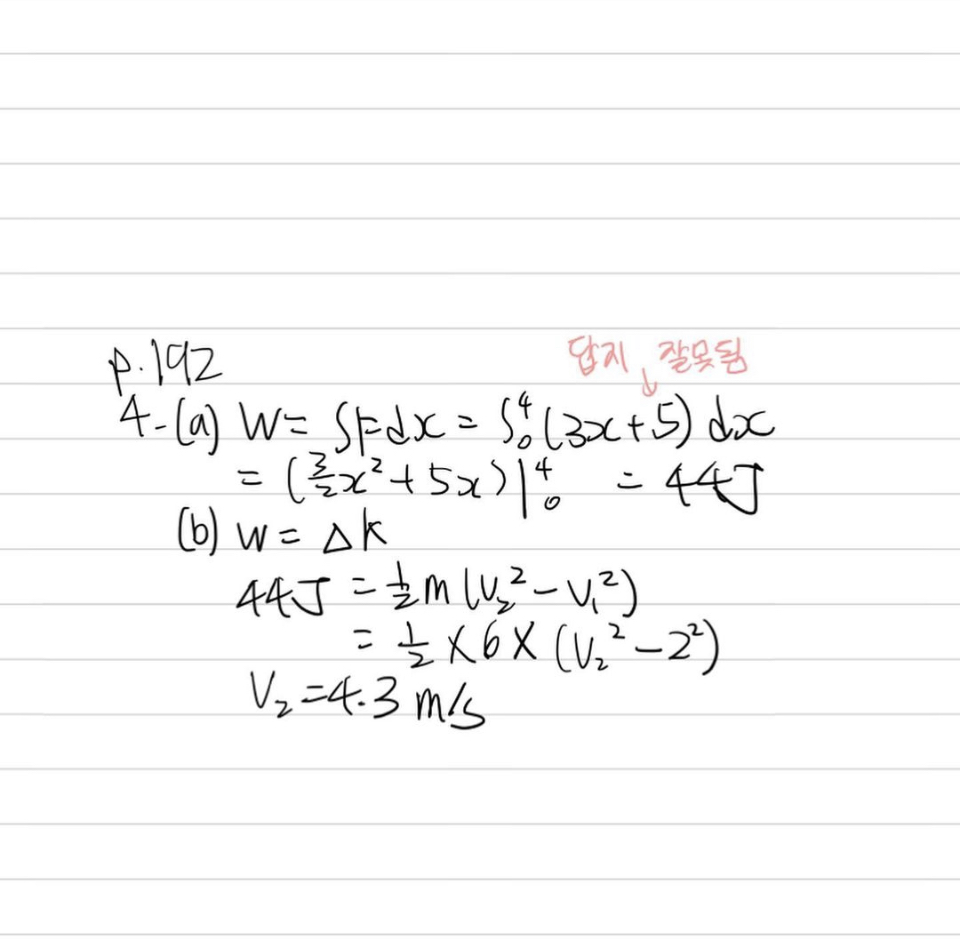 p.192
답지 잘못됨
4-(a) W= ∫Fdx = ∫₀⁴(3x+5) dx
= (3/2x²+5x)|⁴₀ = 44J
(b) W= △k
44J = 1/2m(V₂²-V₁²)
= 1/2×6×(V₂²-2²)
V₂=4.3 m/s